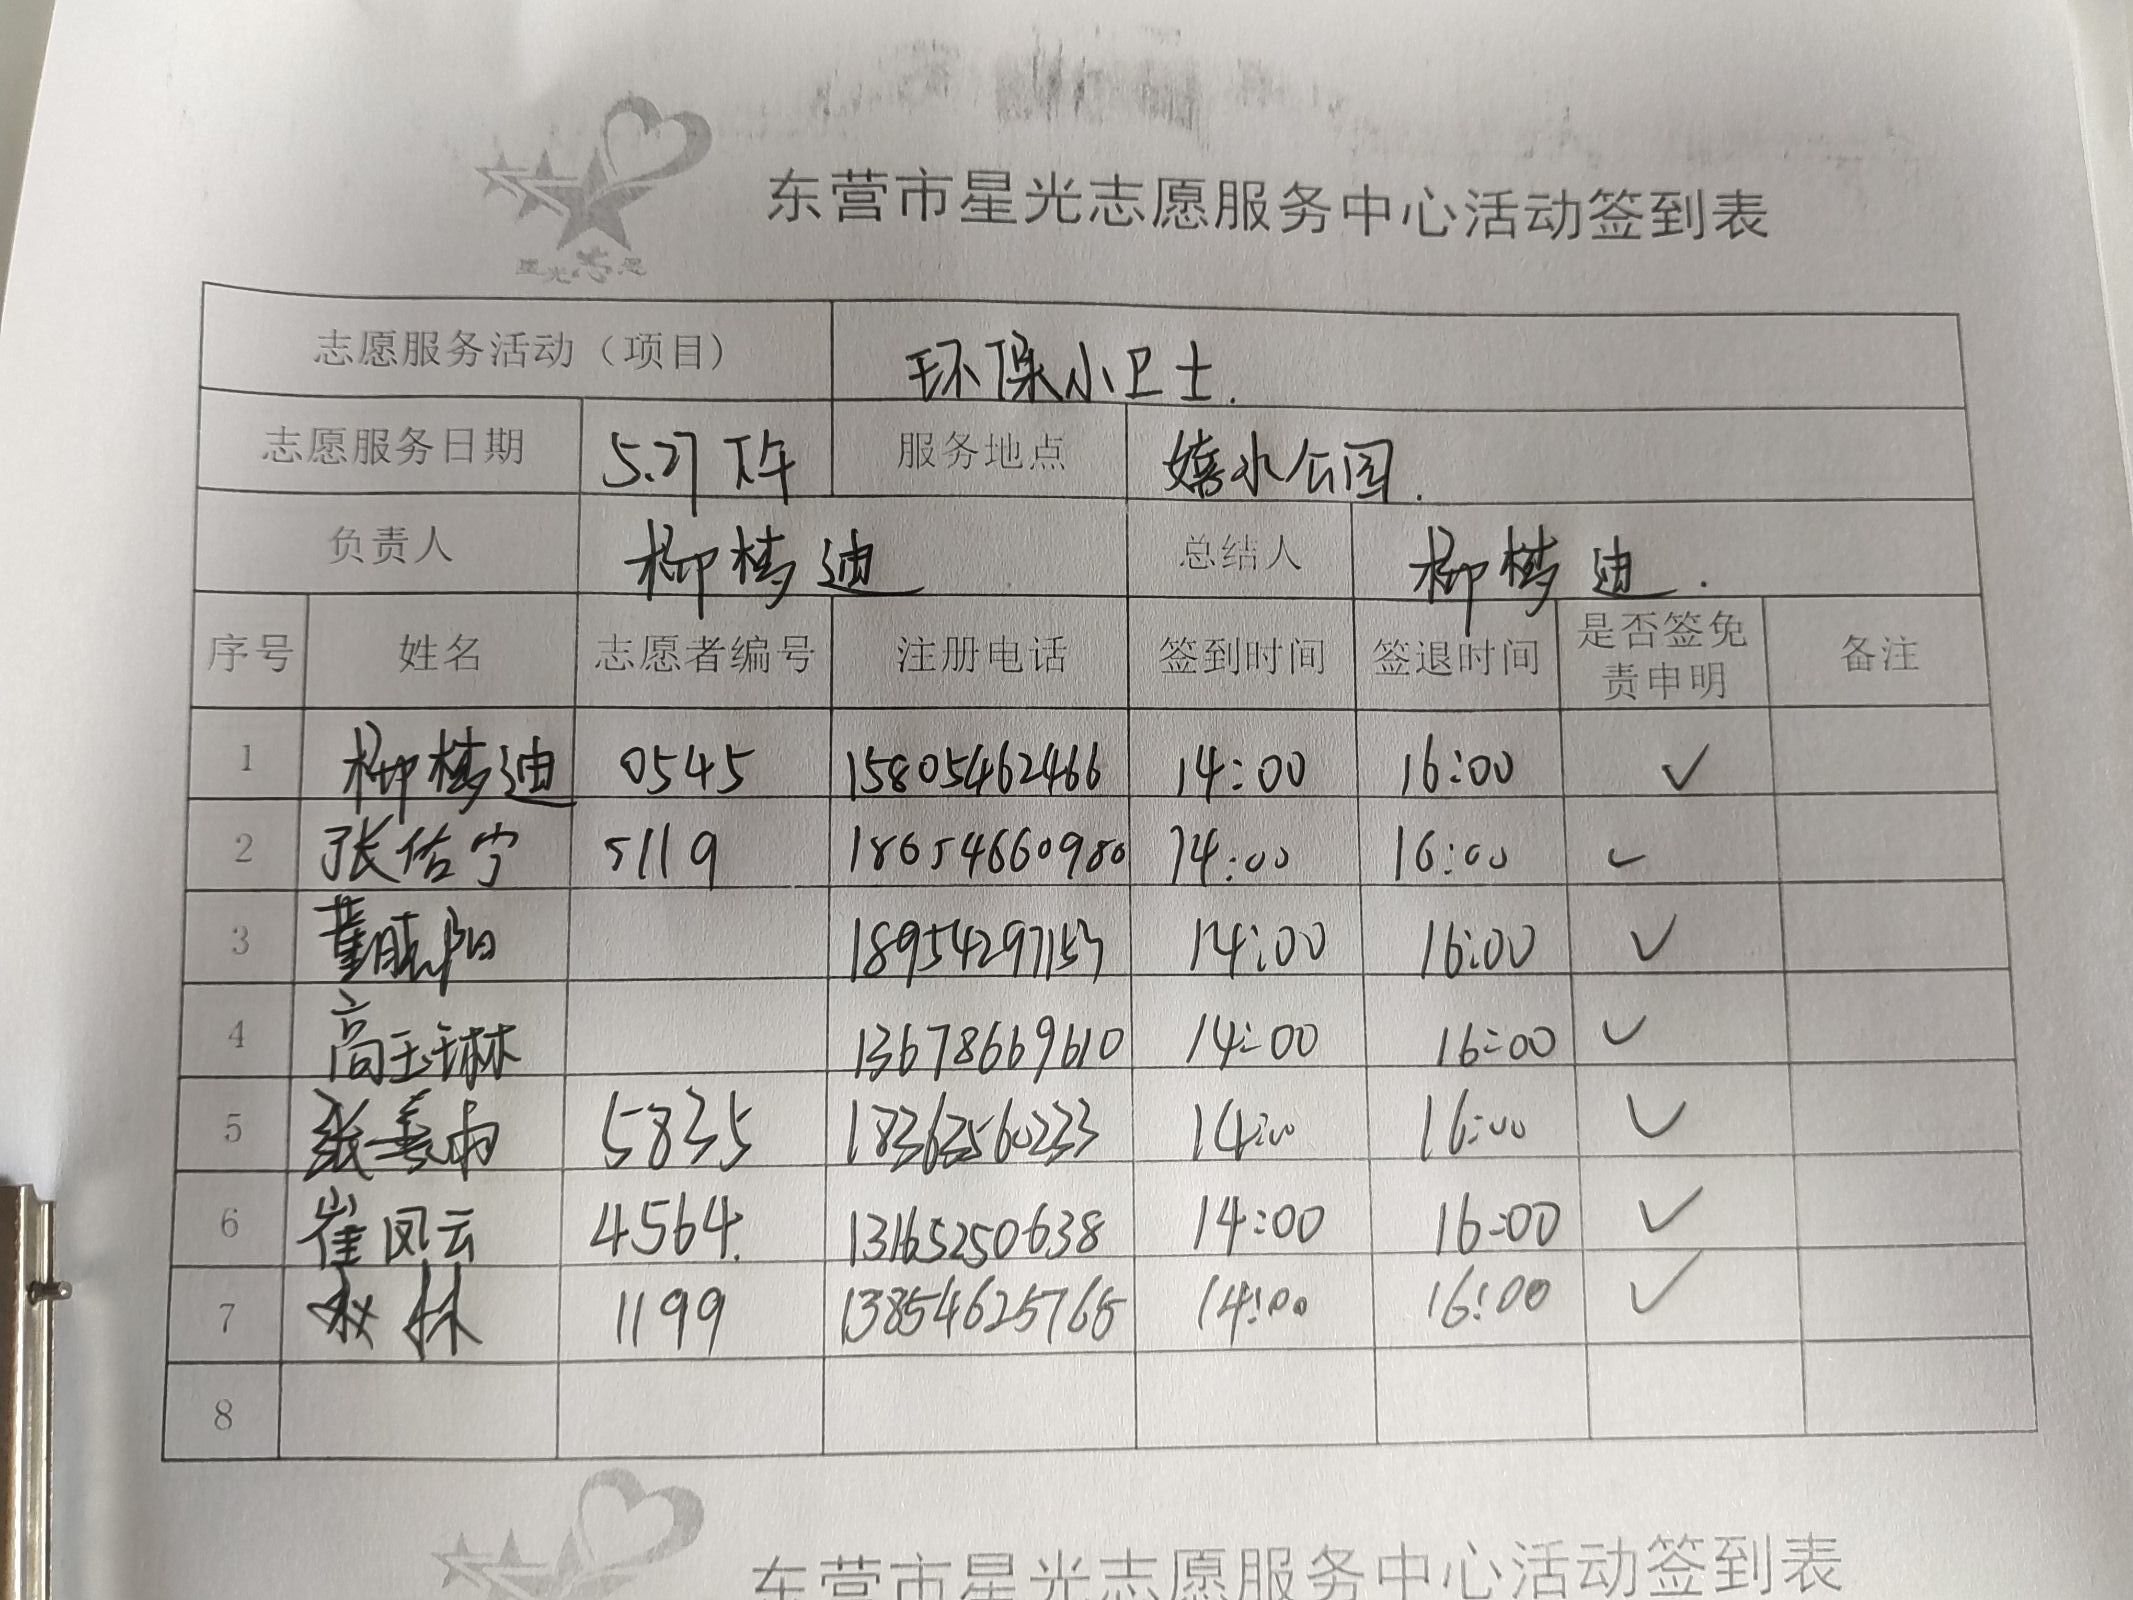 东营市星光志愿服务中心活动签到表
星光志愿
志愿服务活动（项目） 环保小卫士.
志愿服务日期 5.27 下午 服务地点 嬉水公园.
负责人 柳梦迪 总结人 柳梦迪.
序号 姓名 志愿者编号 注册电话 签到时间 签退时间 是否签免责申明 备注
1 柳梦迪 0545 15805462466 14:00 16:00 ✓
2 张佑宁 5119 18654660980 14:00 16:00 ✓
3 董晓阳 18954297153 14:00 16:00 ✓
4 高玉琳 13678669610 14:00 16:00 ✓
5 张善雨 5835 18362560233 14:00 16:00 ✓
6 崔凤云 4564. 13165250638 14:00 16:00 ✓
7 林 1199 13854625765 14:00 16:00 ✓
8
东营市星光志愿服务中心活动签到表